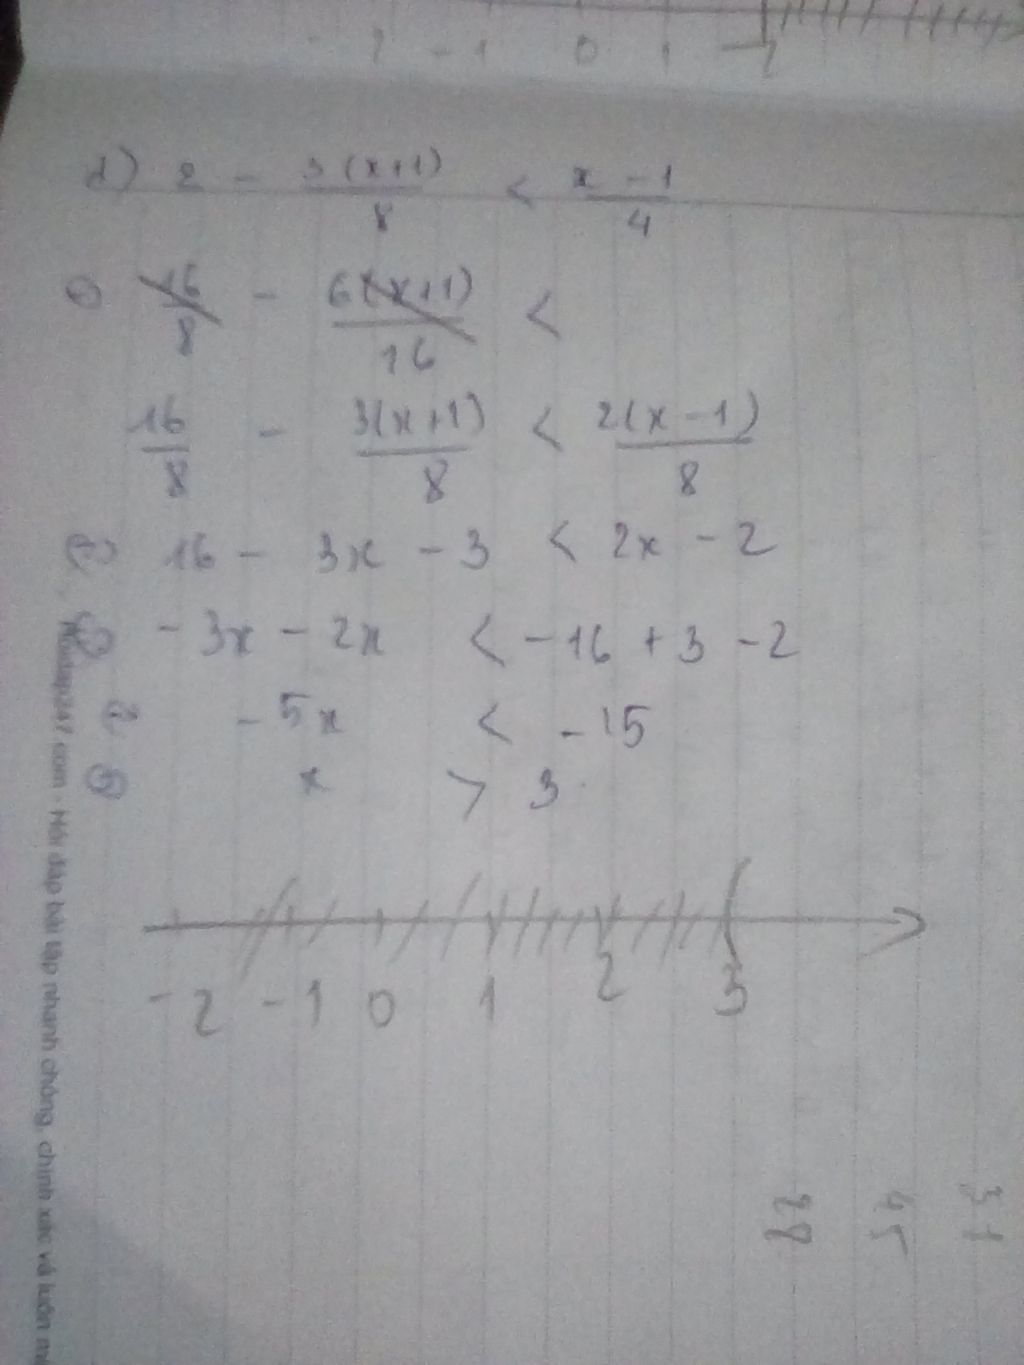 -1 0 1 2
d) 2 - 3(x+1)/8 < x - 1/4
⇔ 16/8 - 6(x+1)/16 <
16/8 - 3(x+1)/8 < 2(x-1)/8
⇔ 16 - 3x - 3 < 2x - 2
⇔ -3x - 2x < -16 + 3 - 2
⇔ -5x < -15
⇔ x > 3
-2 -1 0 1 2 3
Hoidap247.com - Hỏi đáp bài tập nhanh chóng, chính xác và luôn